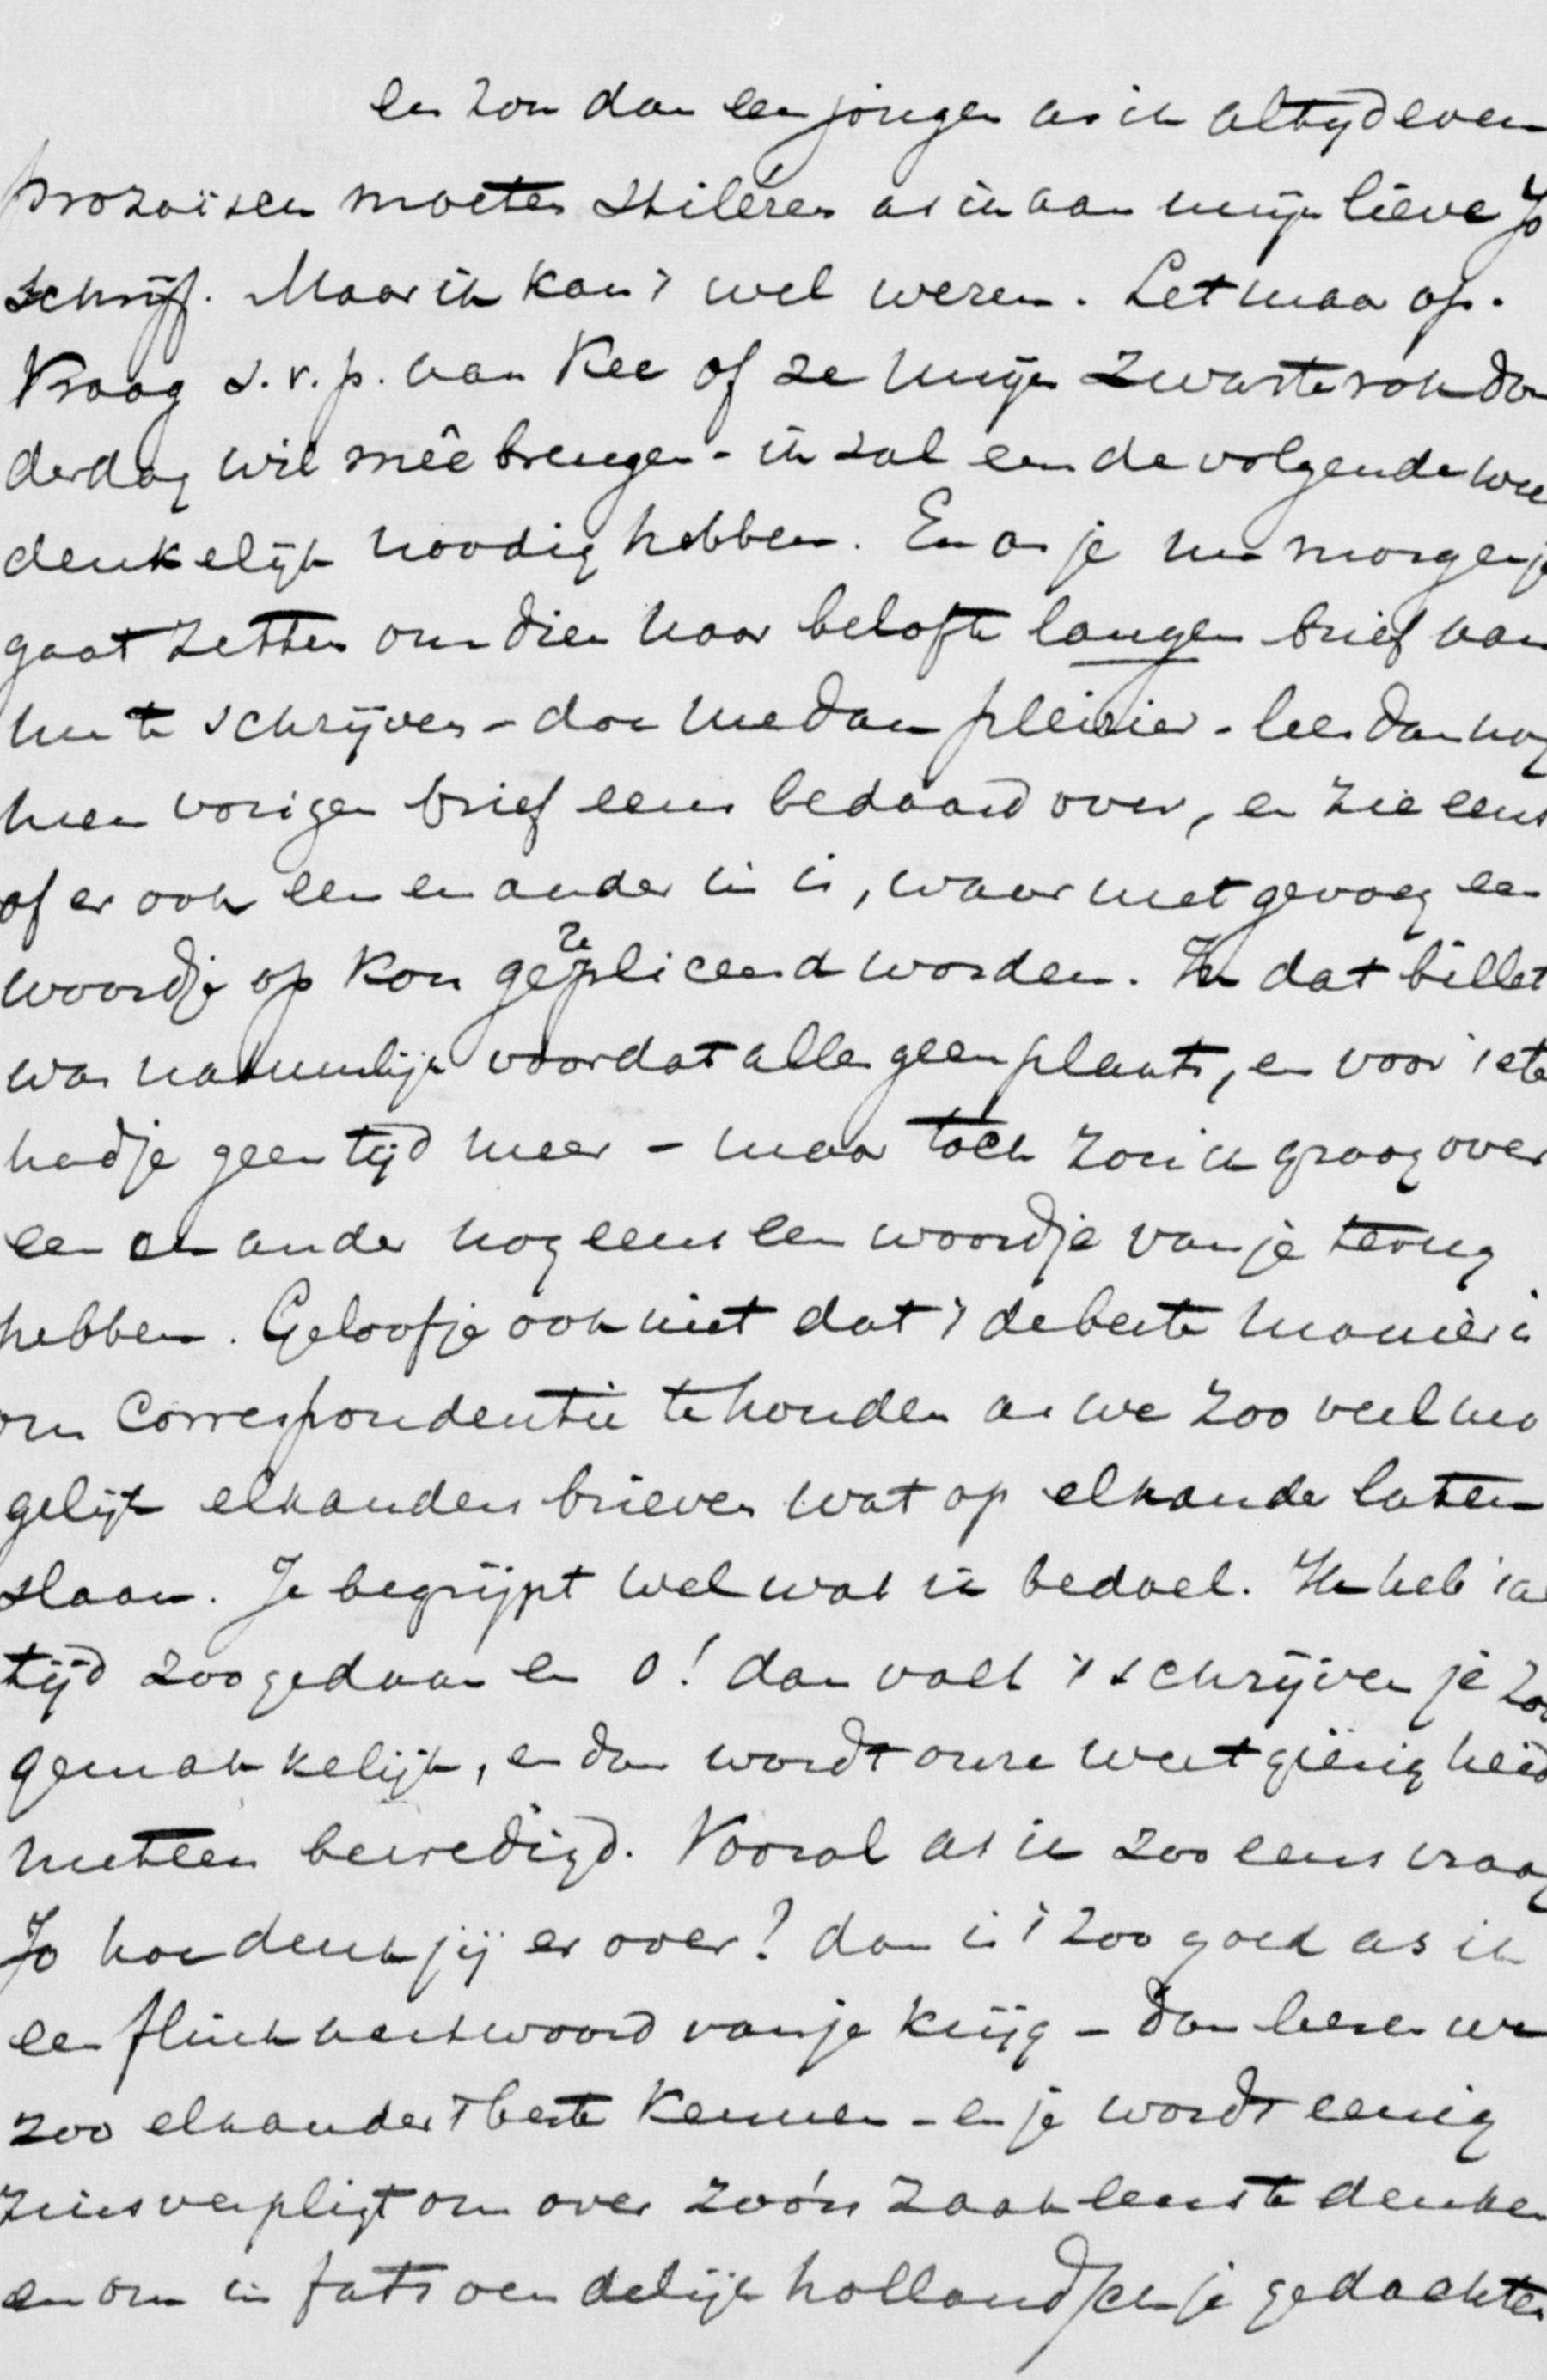 en zou dan een jongen as ik altijd even
prozaïsch moeten stileren as ik aan mijn lieve Jo
schrijf. Maar ik kan 't wel weren. Let maar op.
Vraag s.v.p. aan Kee of ze mijn zwarte rok don
derdag wil meê brengen - ik zal em de volgende wee
denkelijk noodig hebben. En as je nu morgen je
gaat zetten om dien haar belofte langen brief aan
me te schrijven - doe me dan pleizier - lees dan nog
meen vorigen brief eens bedaard over, en zie eens
of er ook een en ander in is, waar met gevoeg een
woordje op kon gerepliceerd worden. In dat billet
was natuurlijk voor dat alles geen plaats, en voor 'setc
had je geen tijd meer - maar toch zou ik graag over
een en ander nog eens een woordje van je terug
hebben. Geloof je ook niet dat 't de beste manier is
om correspondentie te houden as we zoo veel mo
gelijk elkanders brieven wat op elkander laten
slaan. Je begrijpt wel wat ik bedoel. Ik heb 't al
tijd zoo gedaan en o! dan valt 't schrijven je zoo
gemakkelijk, en dan wordt onze weetgierigheid
meteen bevredigd. Vooral as ik zoo eens vraag
Jo hoe denk jij er over? dan is 't zoo goed as ik
een flink antwoord van je krijg - dan leeren we
zoo elkander 't beste kennen - en je wordt eenig
zins verpligt om over zoo'n zaak eens te denken
en om in fatsoendelijk hollandsch je gedachten